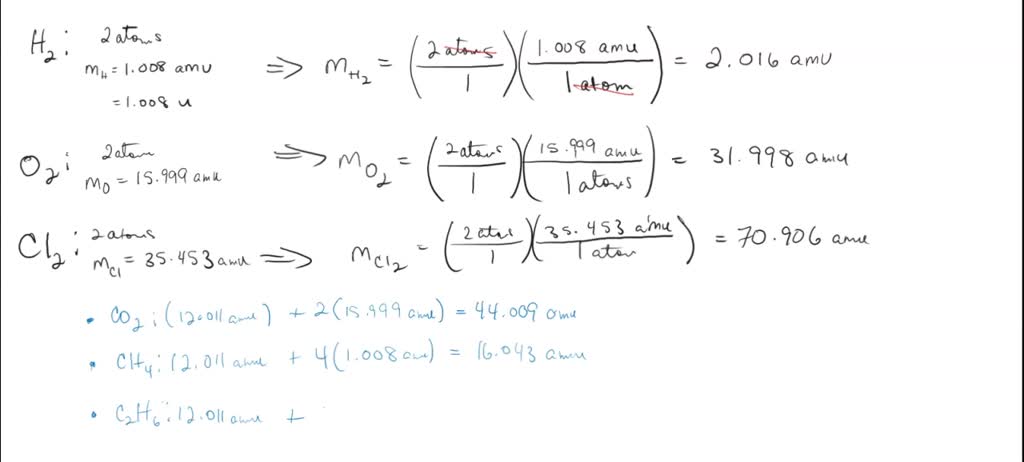 H₂: 2 atoms
m_H = 1.008 amu
= 1.008 u
⟹ m_H₂ = (2 atoms / 1)(1.008 amu / 1 atom) = 2.016 amu
O₂: 2 atom
m_O = 15.999 amu
⟹ m_O₂ = (2 atoms / 1)(15.999 amu / 1 atoms) = 31.998 amu
Cl₂: 2 atoms
m_Cl = 35.453 amu
⟹ m_Cl₂ = (2 / 1)(35.453 amu / 1 atom) = 70.906 amu
• CO₂: (12.011 amu) + 2(15.999 amu) = 44.009 amu
• CH₄: 12.011 amu + 4(1.008 amu) = 16.043 amu
• C₂H₆: 12.011 amu +